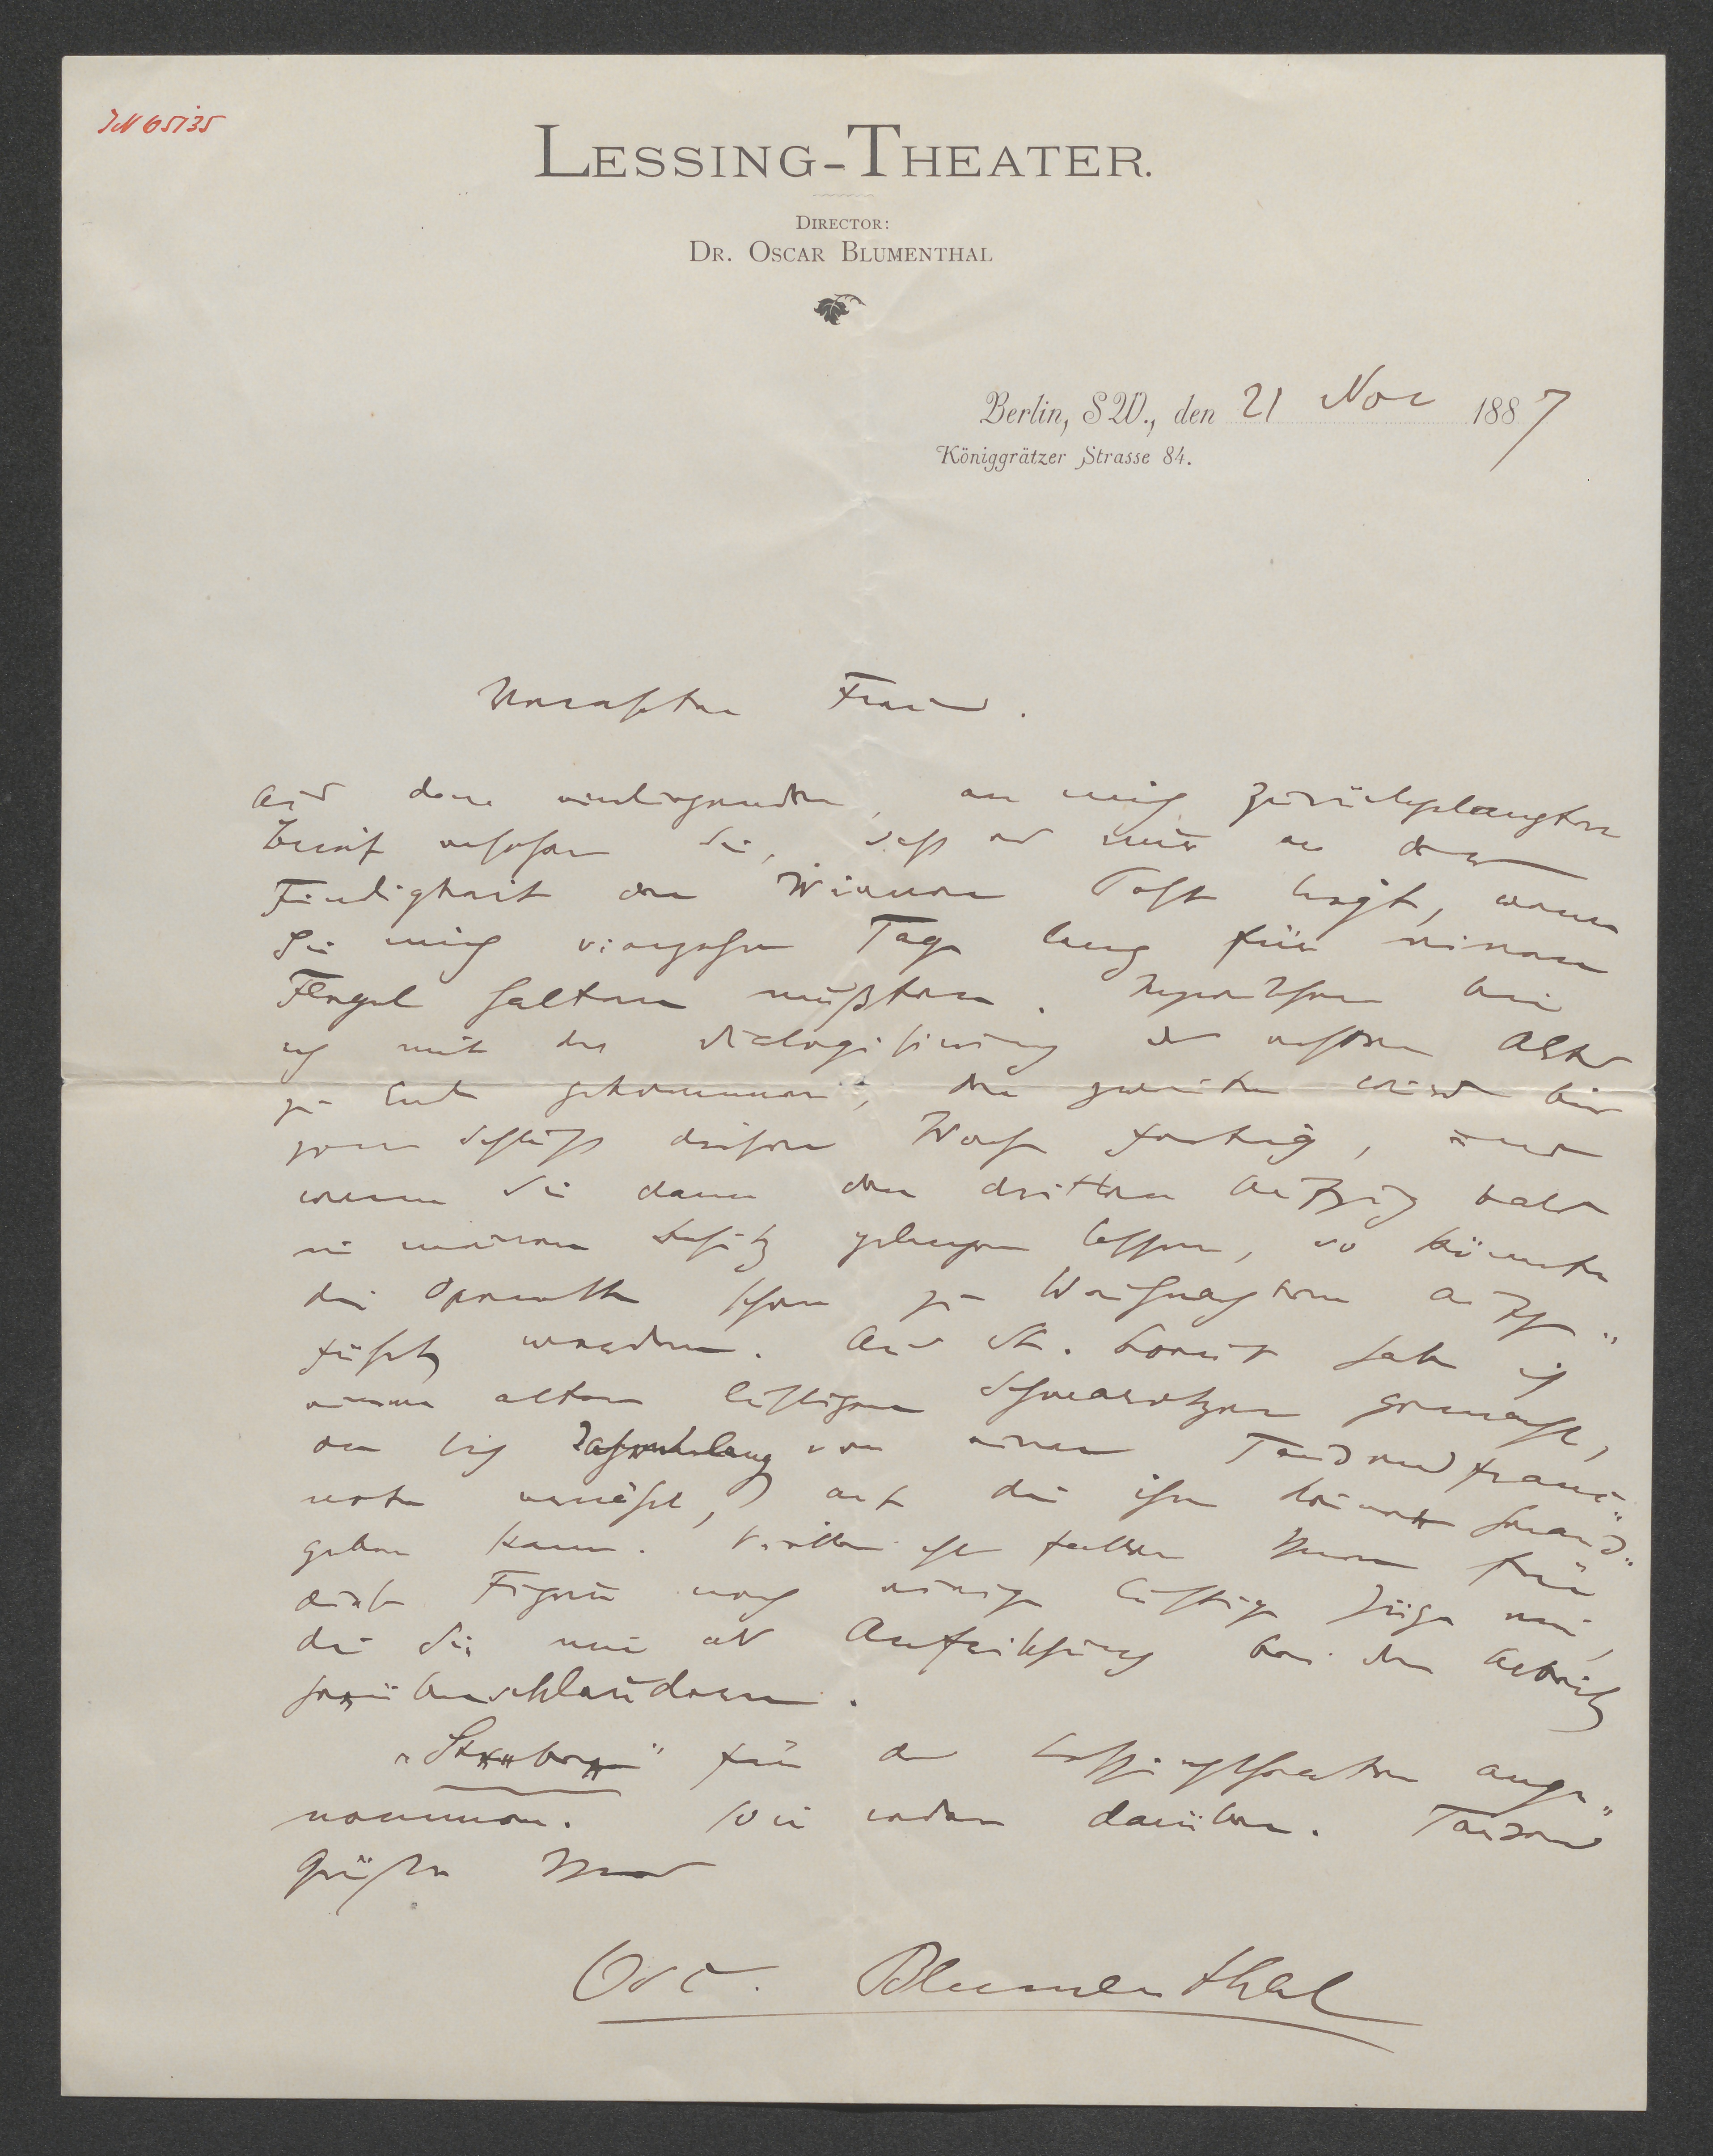 IN 65135
LESSING-THEATER.
DIRECTOR:
DR. OSCAR BLUMENTHAL
Berlin, SW., den 21 Nov 1887
Königgrätzer Strasse 84.
Verehrter Freund.
Aus dem einliegenden, an mich zurückgelangten
Brief ersehen Sie, daß es nur an der
Findigkeit der Wiener Post liegt, wenn
Sie mich vierzehn Tage lang für einen
Flegel halten mußten. Inzwischen bin
ich mit der Dialogisirung des ersten Aktes
zu Ende gekommen, der zweite wird bis
zum Schluß dieser Woche fertig, und
wenn Sie dann den dritten Aufzug bald
in meinen Besitz gelangen lassen, so könnte
die Operette schon zu Weihnachten aufge„
führt werden. Aus St. habe ich
einen alten lustigen gemacht,
der sich von einer
nährt, auf die ihm
geben kann. Vielleicht fallen Ihnen für
diese Figur noch einige lustige Züge ein,
die Sie mir als Auffrischung bei der Arbeit
herüberschleudern.
für das Lessingtheater ange„
nommen. Wir reden darüber. Tausend
Grüße Ihres
Osc. Blumenthal